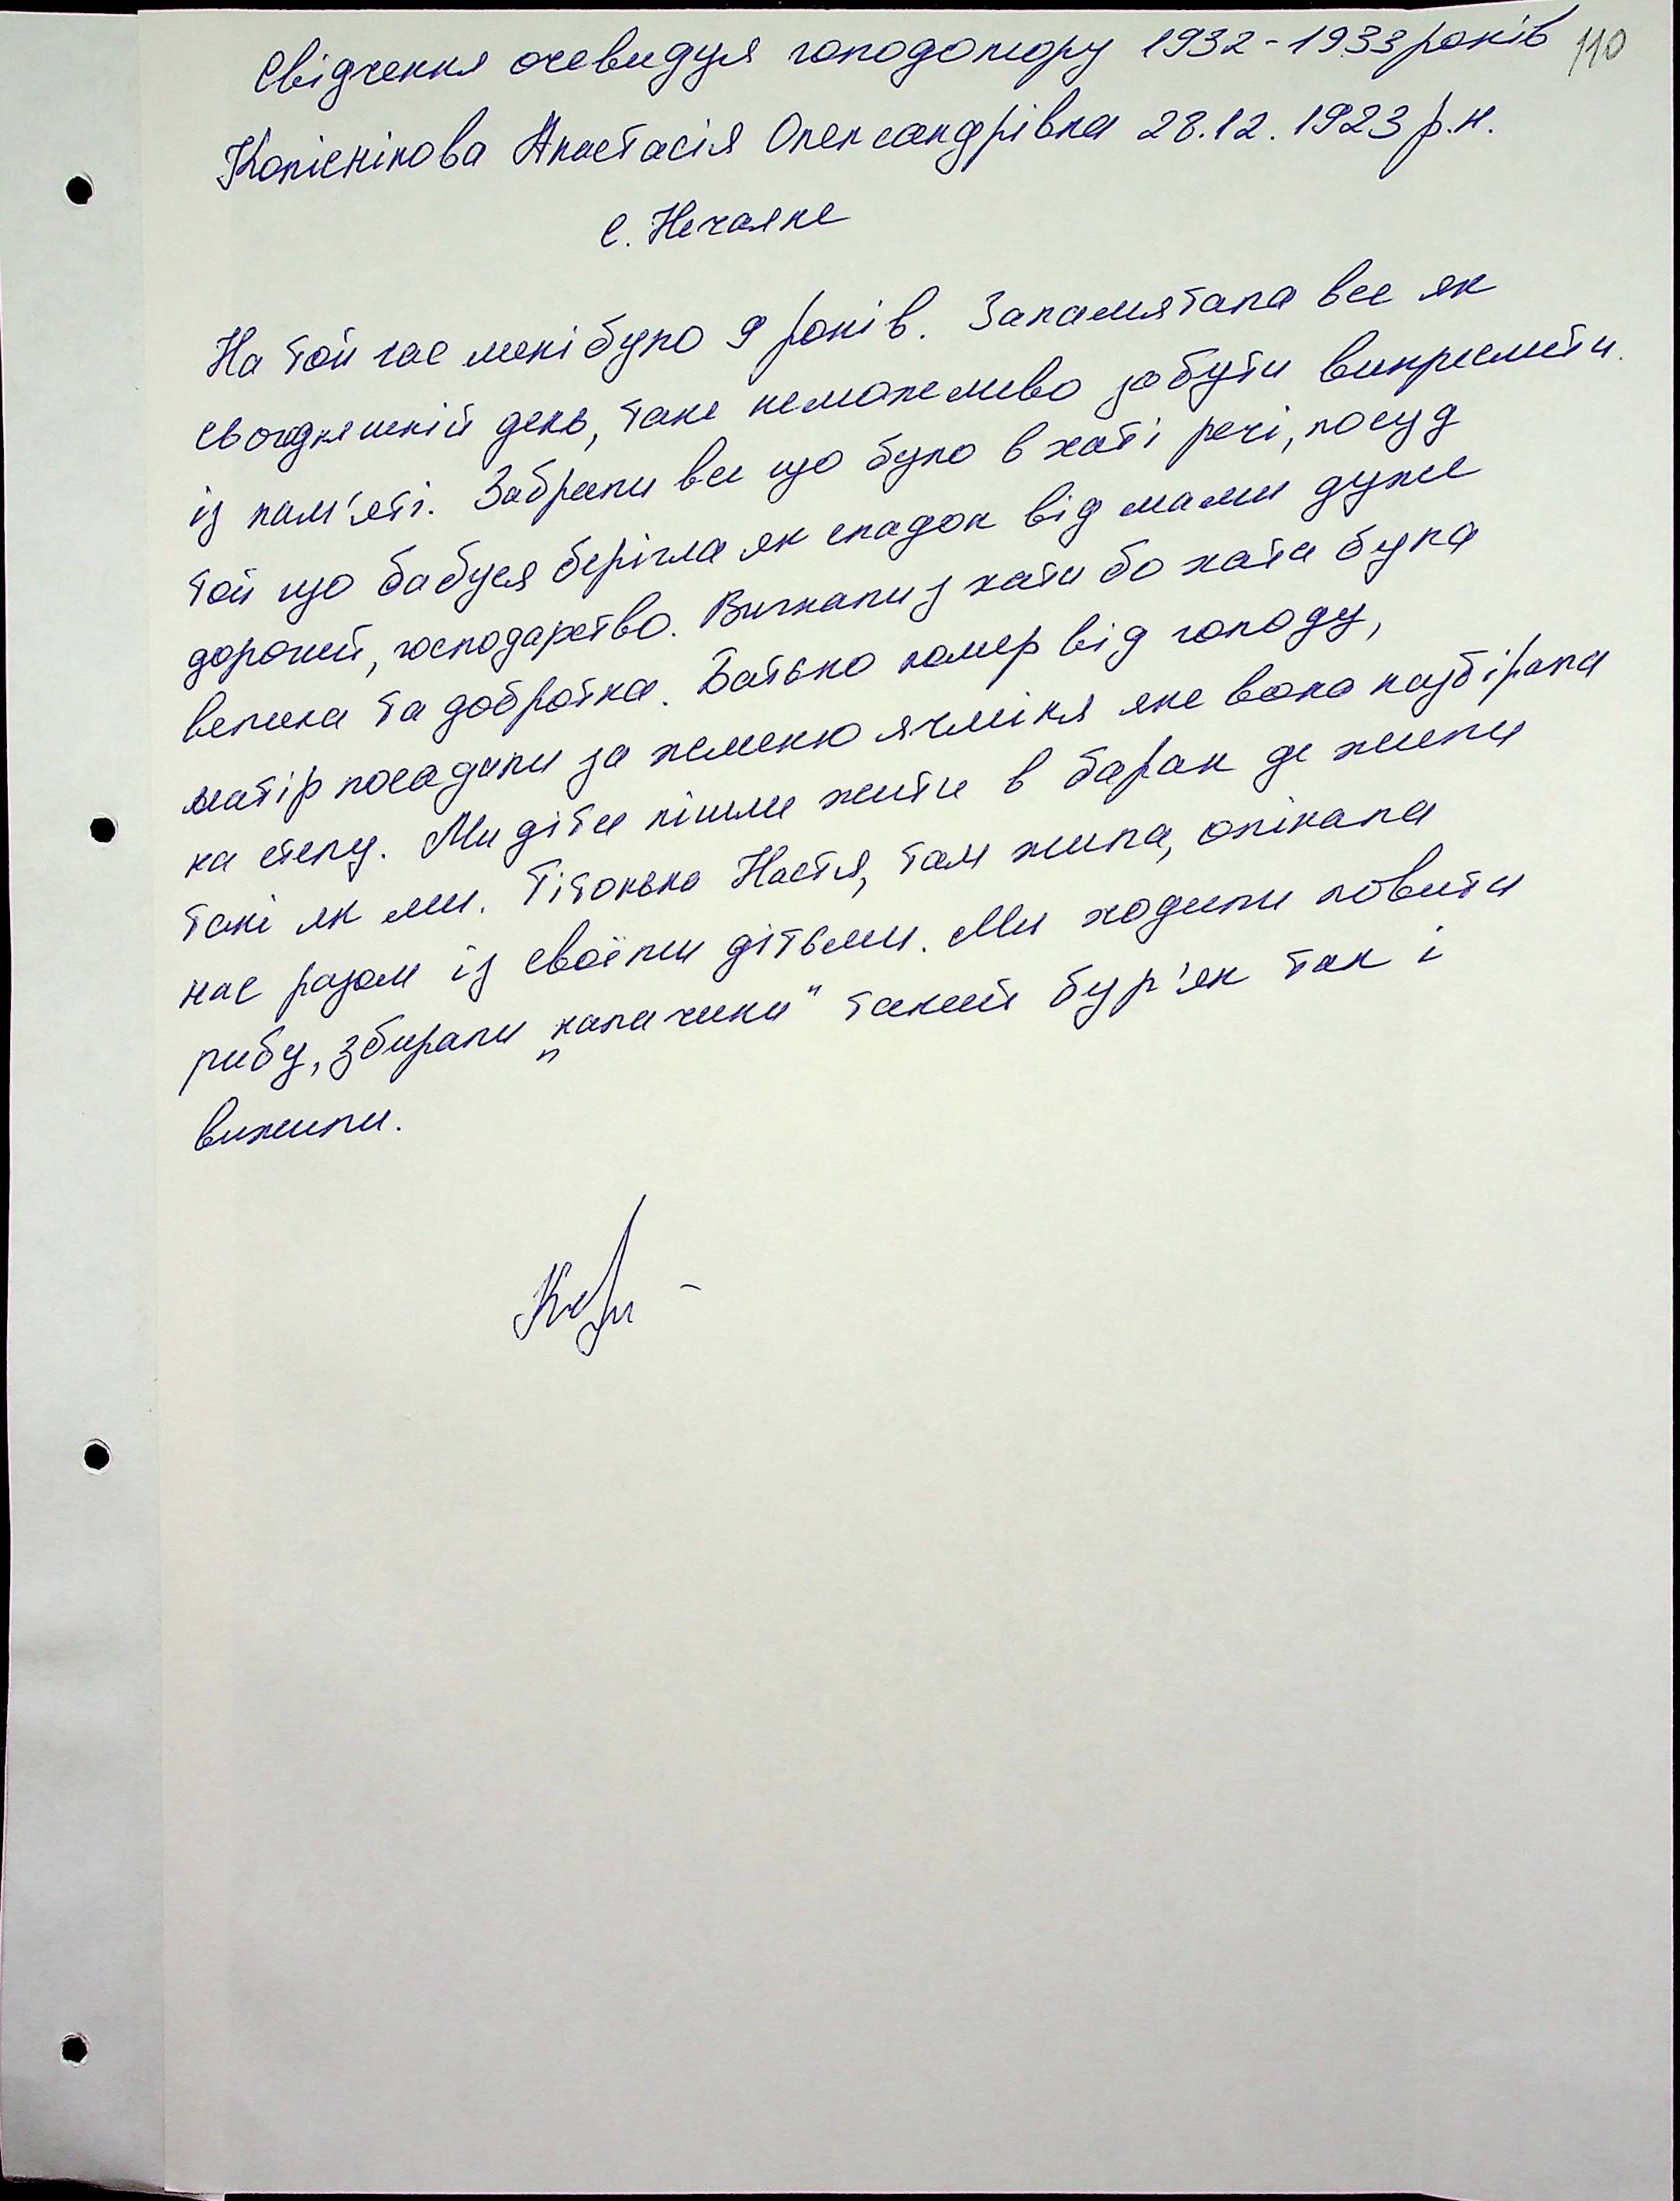 Свідчення очевидця голодомору 1932-1933 років 110
Колєснікова Анастасія Олександрівна 28.12.1923 р.н.
с. Нечаяне
На той час мені було 9 років. Запамятала все як
сьогодняшній день, таке неможемево забути викреслити
із пам'яті. Забрали все що було в хаті речі, посуд
той що бабуся берігла як спадок від мами дуже
дорогий, господарство. Вигнали з хати бо хата була
велика та добротна. Батько помер від голоду,
матір посадили за жменю ячміня яке вона назбірала
на степу. Ми діти пішли жити в барак де жили
такі як ми. Тітонька Настя, там жила, опікала
нас разом із своїми дітьми. Ми ходили ловити
рибу, збирали „калачики" такий бур'ян так і
вижили.